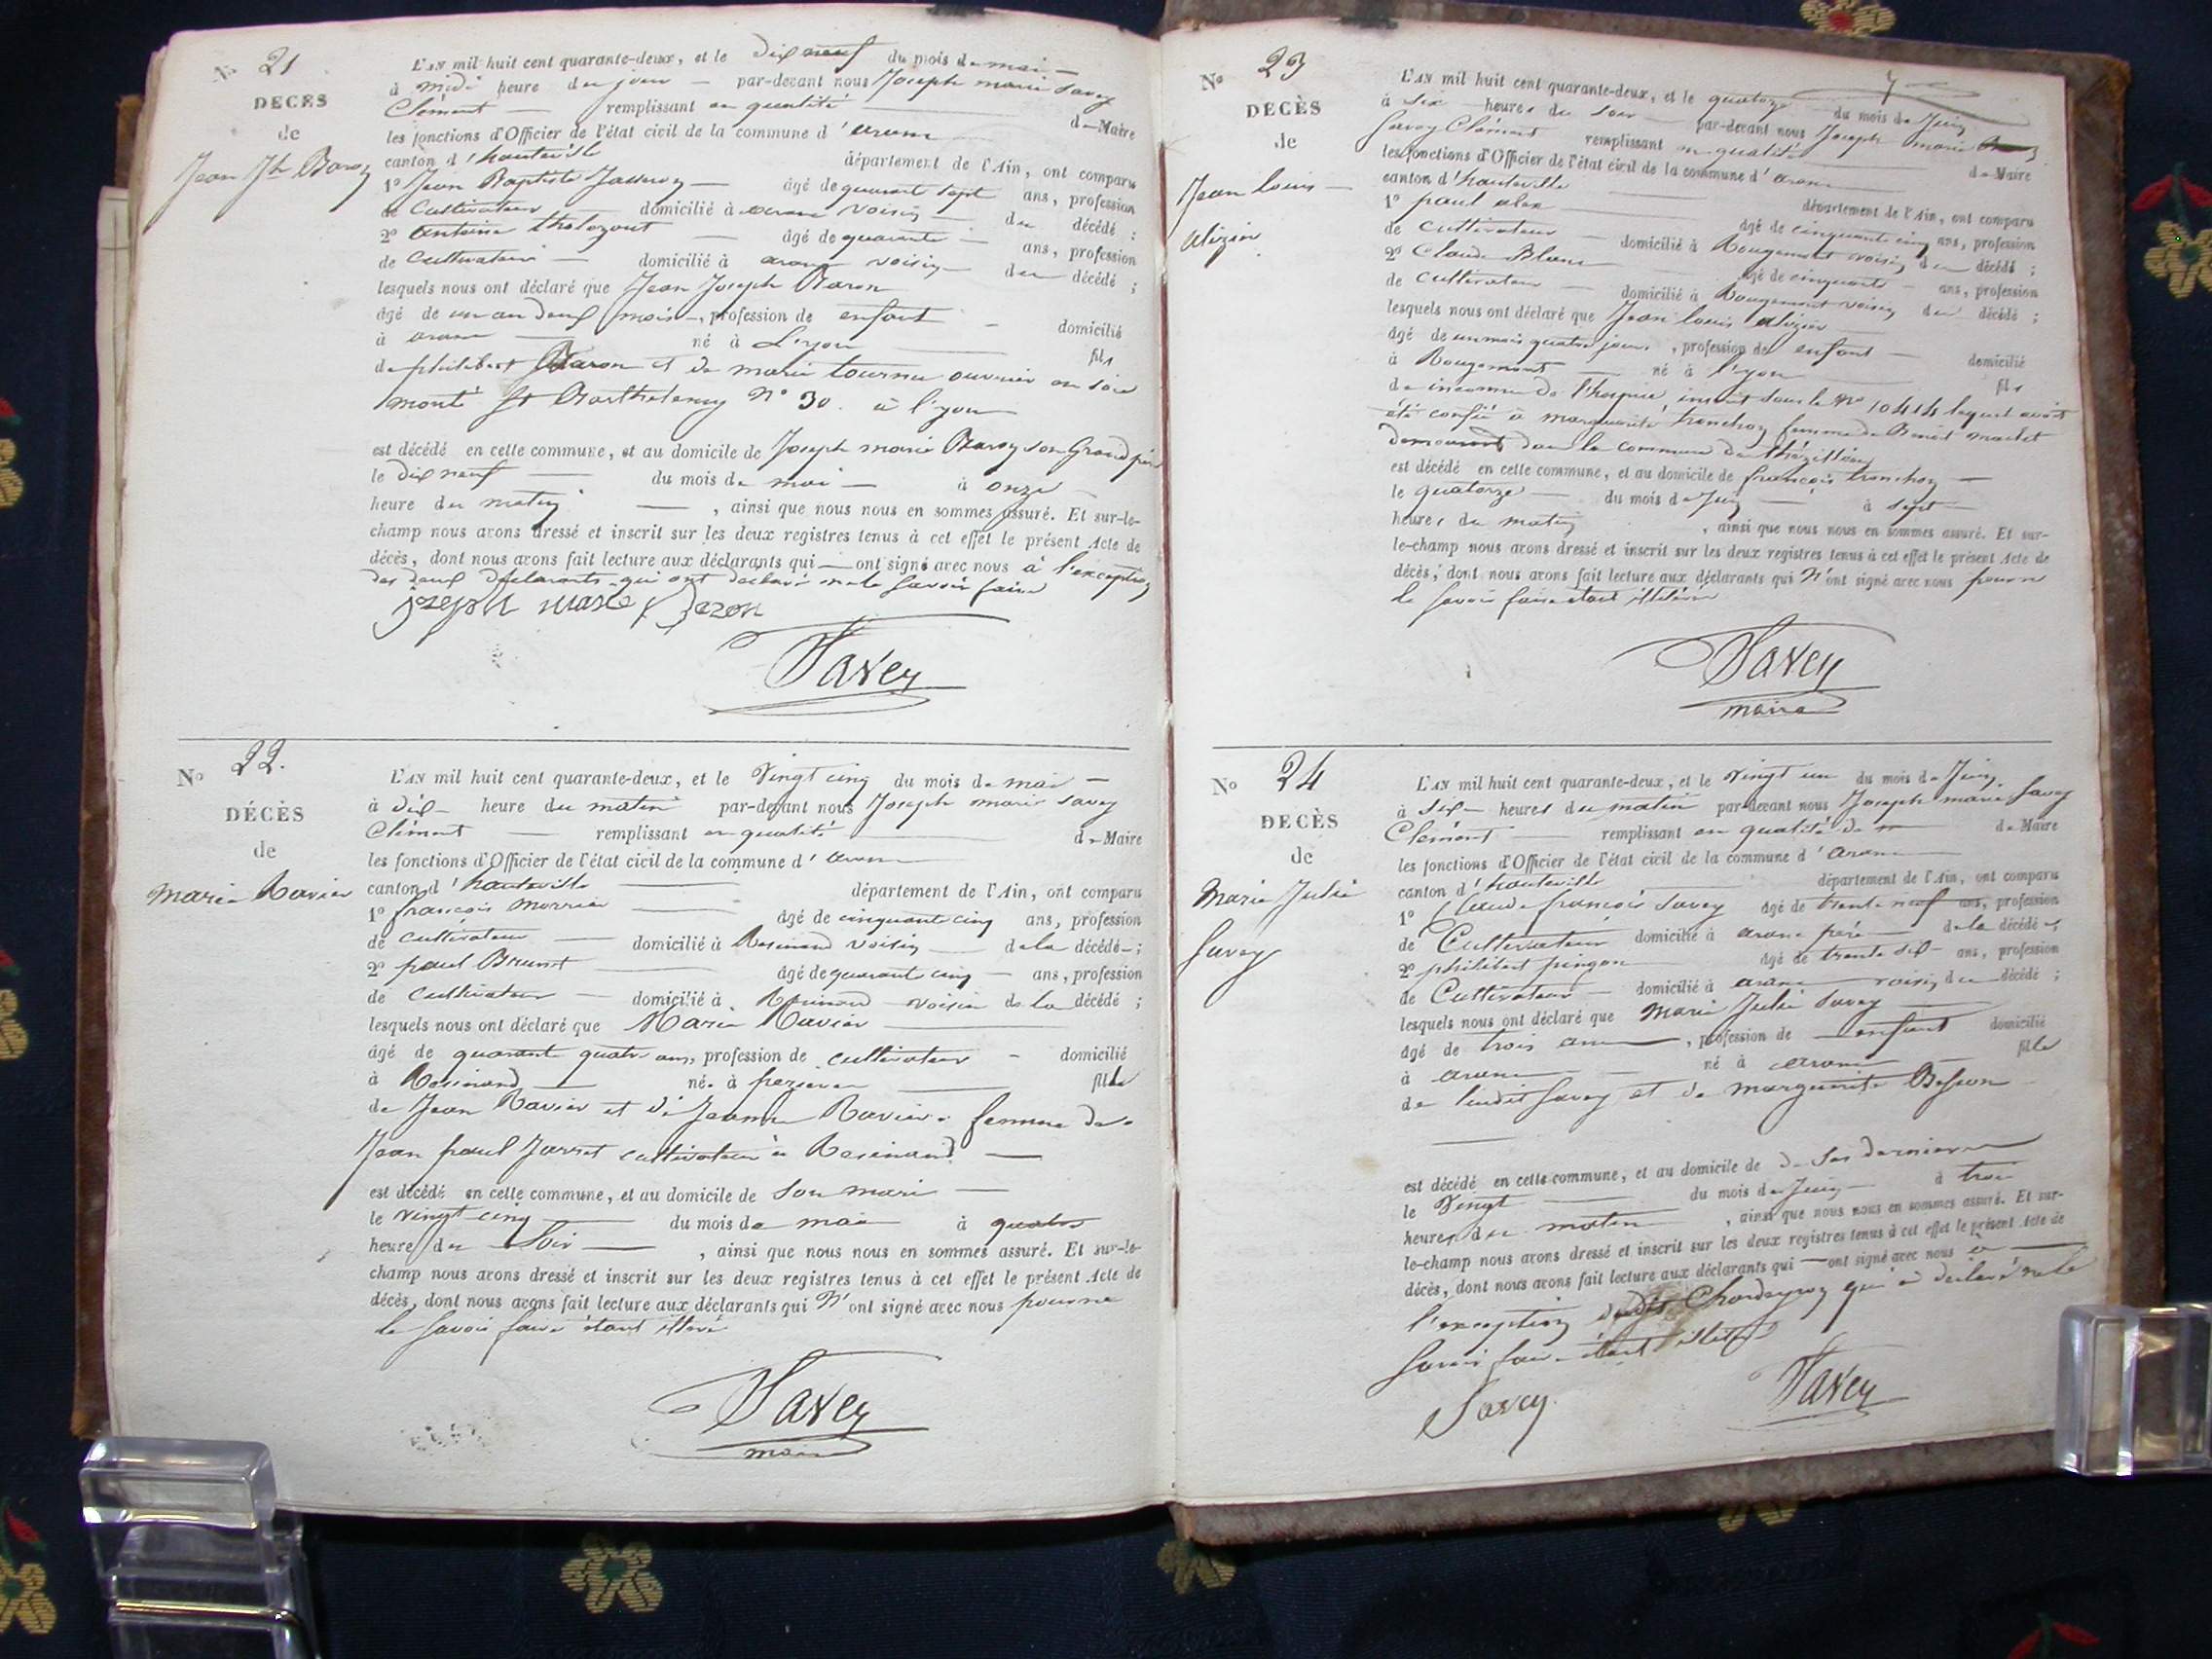 N° 21
DECÈS
de
Jean Jh Baron
L'AN mil huit cent quarante-deux, et le dix neuf du mois de mai
à midi heure du jour par-devant nous Joseph marie Savey
Clément remplissant en qualité de Maire
les fonctions d'Officier de l'état civil de la commune d'arane
canton d'hauteville département de l'Ain, ont comparu
1° Jean Baptiste âgé de quarante sept ans, profession
de Cultivateur domicilié à arane voisin du décédé ;
2° Antoine âgé de quarante ans, profession
de Cultivateur domicilié à arane voisin du décédé ;
lesquels nous ont déclaré que Jean Joseph Baron
âgé de un an deux mois, profession de enfant domicilié
à arane né à Lyon fils
de philibert Baron et de marie tournu ouvrier en soie
monté St Barthelemy N° 30. à lyon
est décédé en cette commune, et au domicile de Joseph marie Baron son Grand père
le dix neuf du mois de mai à onze
heure du matin, ainsi que nous nous en sommes assuré. Et sur-le-
champ nous avons dressé et inscrit sur les deux registres tenus à cet effet le présent Acte de
décès, dont nous avons fait lecture aux déclarants qui ont signé avec nous à l'exception
des deux déclarants qui ont déclaré ne le savoir faire
joseph marie Baron
Savey
N° 22.
DÉCÈS
de
Marie Ravier
L'AN mil huit cent quarante-deux, et le Vingt cinq du mois de mai
à dix heure du matin par-devant nous Joseph marie Savey
Clément remplissant en qualité de Maire
les fonctions d'Officier de l'état civil de la commune d'arane
canton d'hauteville département de l'Ain, ont comparu
1° françois âgé de cinquante cinq ans, profession
de cultivateur domicilié à Resinand voisin de la décédé ;
2° paul Brunet âgé de quarante cinq ans, profession
de cultivateur domicilié à Resinand voisin de la décédé ;
lesquels nous ont déclaré que Marie Ravier
âgé de quarante quatre ans, profession de cultivateur domicilié
à Resinand né à fille
de Jean Ravier et de Jeanne Ravier. femme de
Jean paul Jarret cultivateur à Resinand
est décédé en cette commune, et au domicile de son mari
le vingt cinq du mois de mai à quatre
heure du Soir, ainsi que nous nous en sommes assuré. Et sur-le-
champ nous avons dressé et inscrit sur les deux registres tenus à cet effet le présent Acte de
décès, dont nous avons fait lecture aux déclarants qui N'ont signé avec nous pour ne
le savoir faire étant
Savey
maire
N° 23
DECÈS
de
Jean Louis
alizier
L'AN mil huit cent quarante-deux, et le quatorze du mois de Juin
à six heures du soir par-devant nous Joseph marie
Savey Clément remplissant en qualité de Maire
les fonctions d'Officier de l'état civil de la commune d'arane
canton d'hauteville département de l'Ain, ont comparu
1° paul âgé de cinquante cinq ans, profession
de cultivateur domicilié à Rougemont voisin du décédé ;
2° Claude Blanc âgé de cinquante ans, profession
de cultivateur domicilié à Rougemont voisin du décédé ;
lesquels nous ont déclaré que Jean Louis alizier
âgé de un mois quatre jours, profession de enfant domicilié
à Rougemont né à lyon fils
de inconnu de l'hospice, inscrit sous le N° 10414 lequel avait
été confié à marguerite tronchon femme de Benoit
demeurant dans la commune de thézillieu
est décédé en cette commune, et au domicile de françois tronchon
le quatorze du mois de Juin à sept
heures du matin, ainsi que nous nous en sommes assuré. Et sur-
le-champ nous avons dressé et inscrit sur les deux registres tenus à cet effet le présent Acte de
décès, dont nous avons fait lecture aux déclarants qui N'ont signé avec nous pour ne
le savoir faire étant
Savey
maire
N° 24
DECÈS
de
Marie Julie
Savey
L'AN mil huit cent quarante-deux, et le vingt un du mois de Juin
à six heures du matin par-devant nous Joseph marie Savey
Clément remplissant en qualité de de Maire
les fonctions d'Officier de l'état civil de la commune d'arane
canton d'hauteville département de l'Ain, ont comparu
1° Claude françois Savey âgé de trente neuf ans, profession
de Cultivateur domicilié à arane père de la décédé ;
2° philibert pingon âgé de trente six ans, profession
de Cultivateur domicilié à arane voisin du décédé ;
lesquels nous ont déclaré que Marie Julie Savey
âgé de trois ans, profession de enfant domicilié
à arane né à arane fille
de ludit Savey et de marguerite Besson
est décédé en cette commune, et au domicile de
le Vingt du mois de Juin à trois
heures du matin, ainsi que nous nous en sommes assuré. Et sur-
le-champ nous avons dressé et inscrit sur les deux registres tenus à cet effet le présent Acte de
décès, dont nous avons fait lecture aux déclarants qui ont signé avec nous à
l'exception qui a déclaré ne le
Savoir faire étant
Savey
Savey